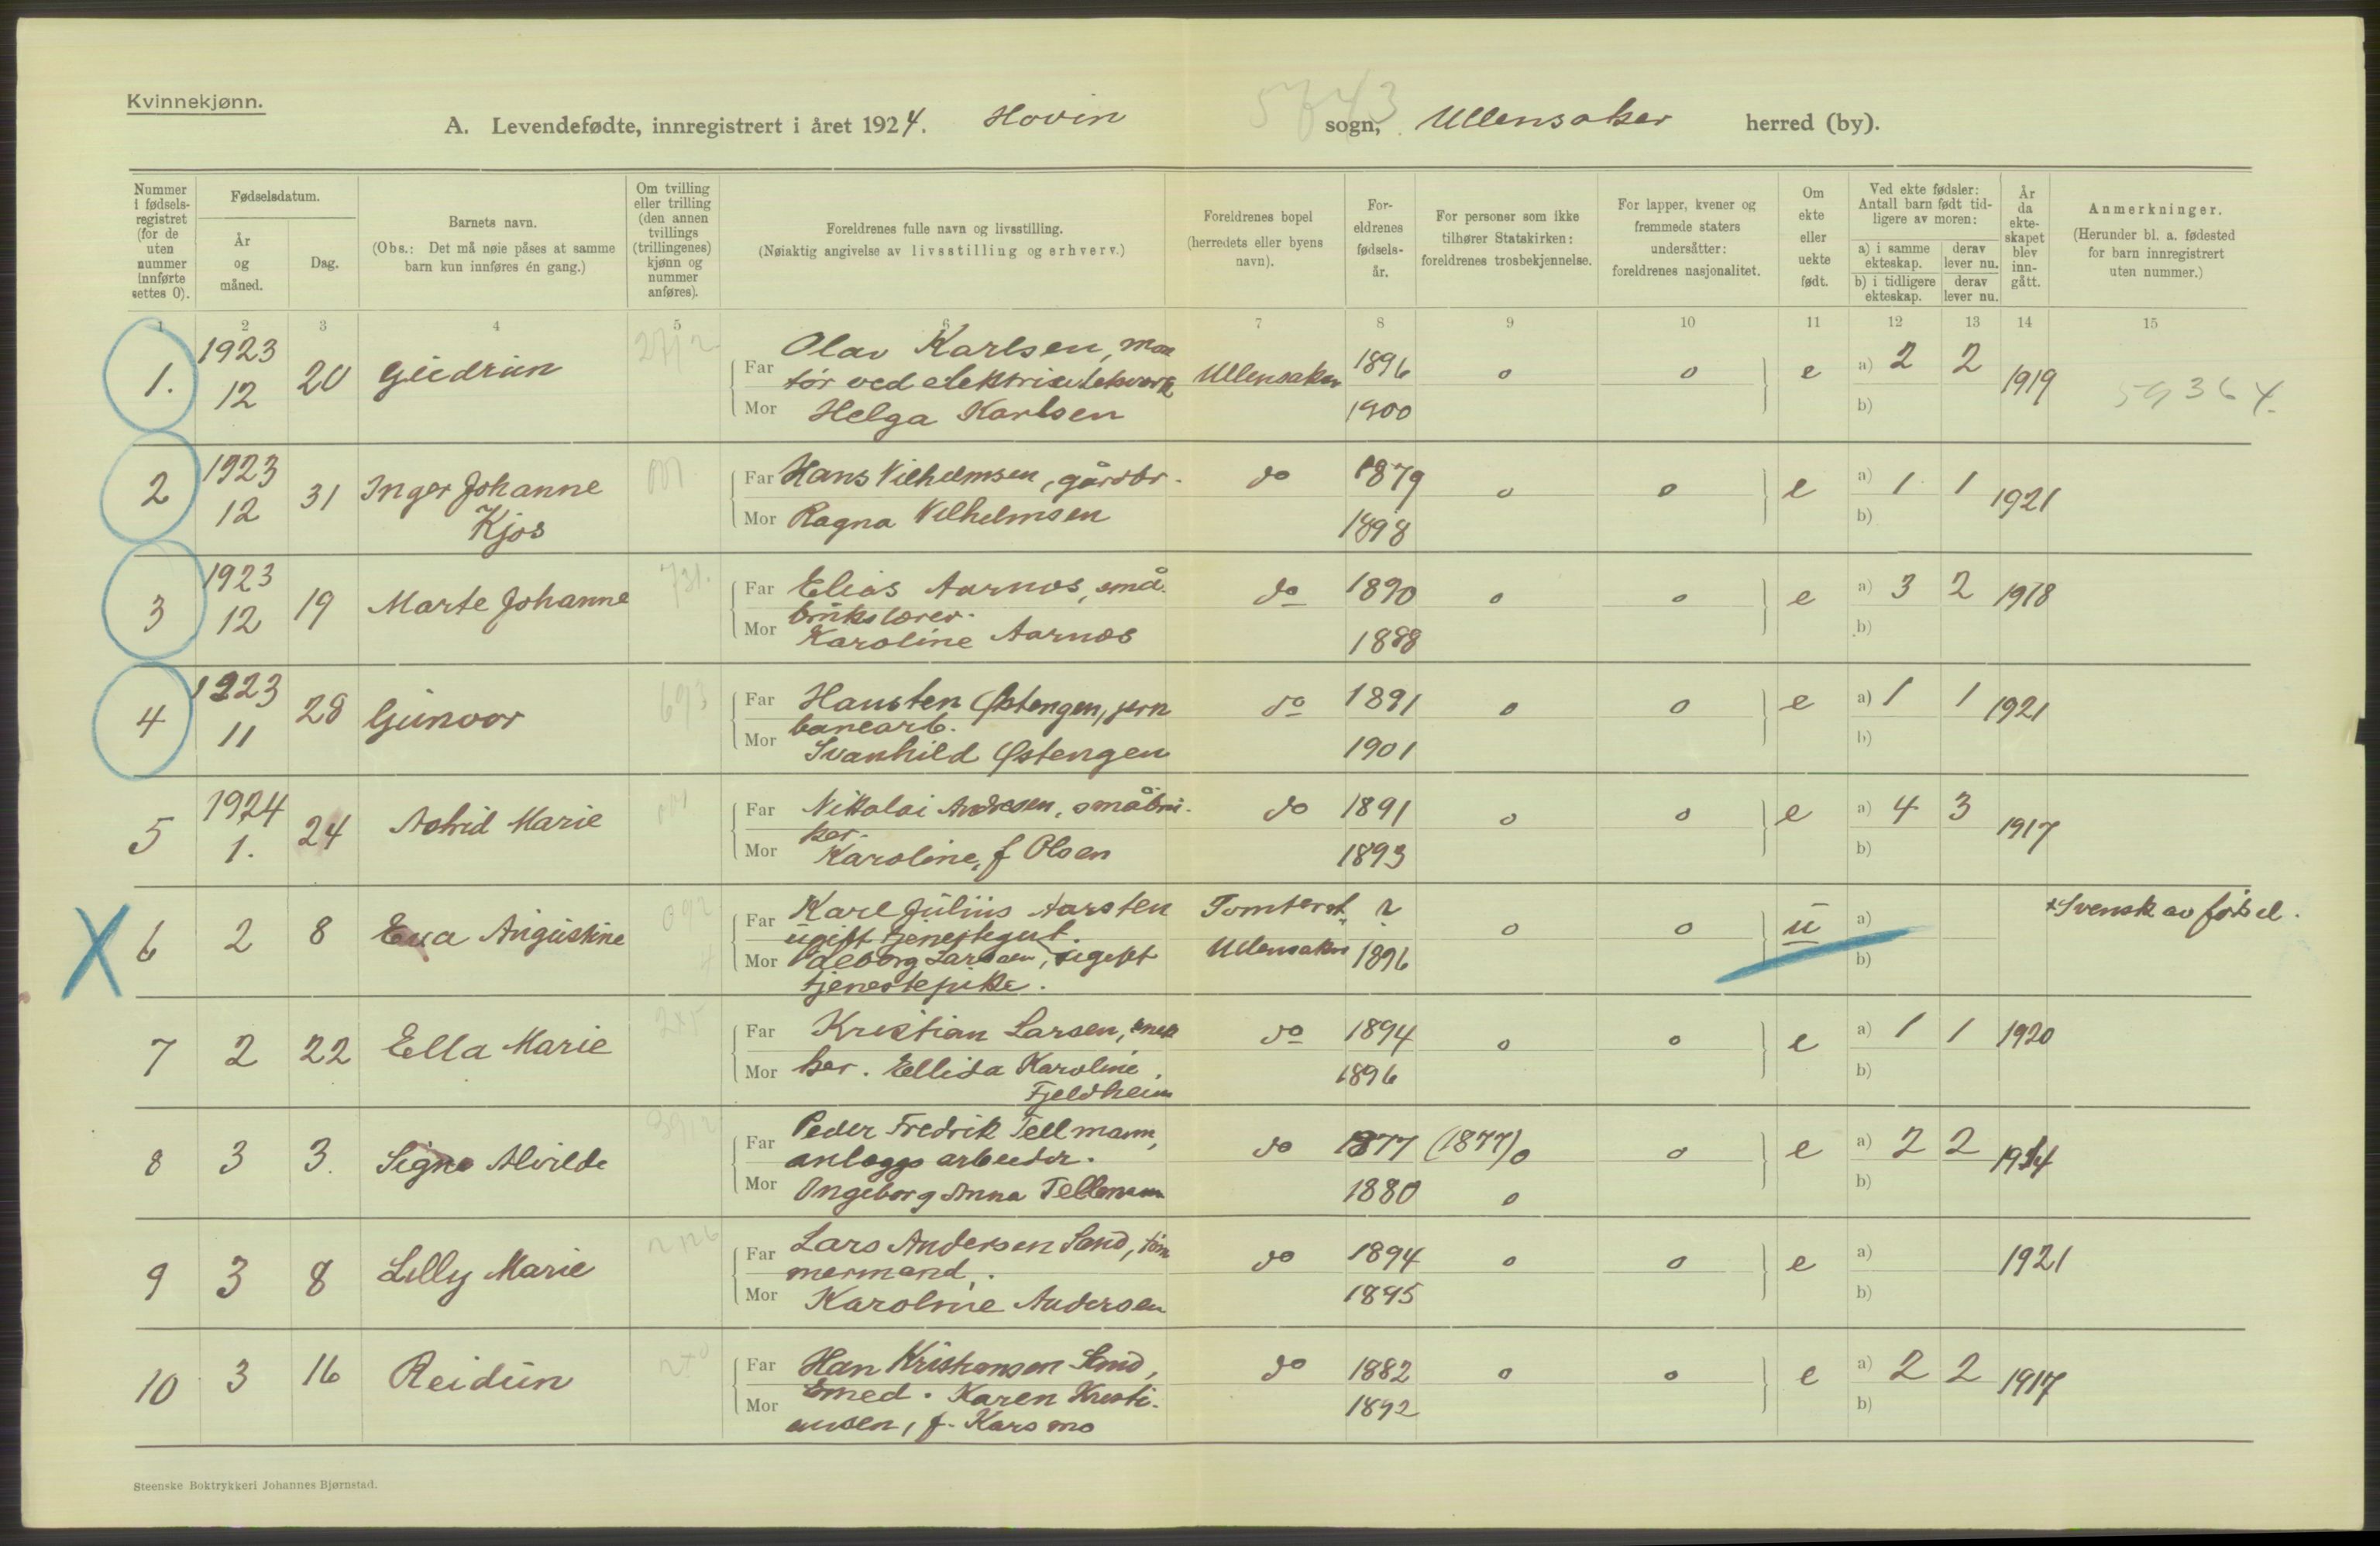 Kvinnekjønn.
A. Levendefødte, innregistrert i året 1924. Hovin sogn, Ullensaker herred (by).
5743
Nummer i fødsels-registret (for de uten nummer innførte settes 0).
Fødselsdatum.
År og måned.
Dag.
Barnets navn.
(Obs.: Det må nøie påses at samme barn kun innføres én gang.)
Om tvilling eller trilling (den annen tvillings (trillingenes) kjønn og nummer anføres).
Foreldrenes fulle navn og livsstilling.
(Nøiaktig angivelse av livsstilling og erhverv.)
Foreldrenes bopel (herredets eller byens navn).
For-eldrenes fødsels-år.
For personer som ikke tilhører Statskirken: foreldrenes trosbekjennelse.
For lapper, kvener og fremmede staters undersåtter: foreldrenes nasjonalitet.
Om ekte eller uekte født.
Ved ekte fødsler: Antall barn født tid-ligere av moren:
a) i samme ekteskap. derav lever nu.
b) i tidligere ekteskap. derav lever nu.
År da ekte-skapet blev inn-gått.
Anmerkninger.
(Herunder bl. a. fødested for barn innregistrert uten nummer.)
1 2 3 4 5 6 7 8 9 10 11 12 13 14 15
1. 1923 12 20 Gudrun Far Olav Karlsen, mon
tør ved elektrisitetsverk Ullensaker 1896 0 0 e a) 2 2 1919 59364.
Mor Helga Karlsen 1900 b)
2 1923 12 31 Inger Johanne Kjos Far Hans Vilhelmsen, gårdbr. do 1879 0 0 e a) 1 1 1921
Mor Ragna Vilhelmsen 1898 b)
3 1923 12 19 Marte Johanne 731. Far Elias Aarnes, små
brukslærer. do 1890 0 0 e a) 3 2 1918
Mor Karoline Aarnes 1888 b)
4 1923 11 28 Gunvor 693 Far Hansten Østengen, jern
banearb. do 1891 0 0 e a) 1 1 1921
Mor Svanhild Østengen 1901 b)
5 1924 1. 24 Astrid Marie Far Nikolai Andresen, småbru-
ker. do 1891 0 0 e a) 4 3 1917
Mor Karoline, f Olsen 1893 b)
X 6 2 8 Eva Augustine 092 Far Karl Julius Aarsten
ugift tjenestegut. Tomteret, ? 0 0 u a) Svensk av fødsel.
Mor Valborg Larsen, ugift
tjenestepike. Ullensaker 1896 b)
7 2 22 Ella Marie Far Kristian Larsen, snek
ker. do 1894 0 0 e a) 1 1 1920
Mor Ellida Karoline
Fjeldheim 1896 b)
8 3 3. Signe Alvilde Far Peder Fredrik Tellmann,
anleggsarbeider. do 1877 (1877) 0 0 e a) 2 2 1914
Mor Ingeborg Anna Tellmann 1880 0 b)
9 3 8 Lilly Marie Far Lars Andersen Sand, tøm
mermand. do 1894 0 0 e a) 1921
Mor Karoline Andersen 1895 b)
10 3 16 Reidun Far Han Kristiansen Sand,
smed. do 1882 0 0 e a) 2 2 1917
Mor Karen Kristi-
ansen, f. Karsmo 1892 b)
Steenske Boktrykkeri Johannes Bjørnstad.